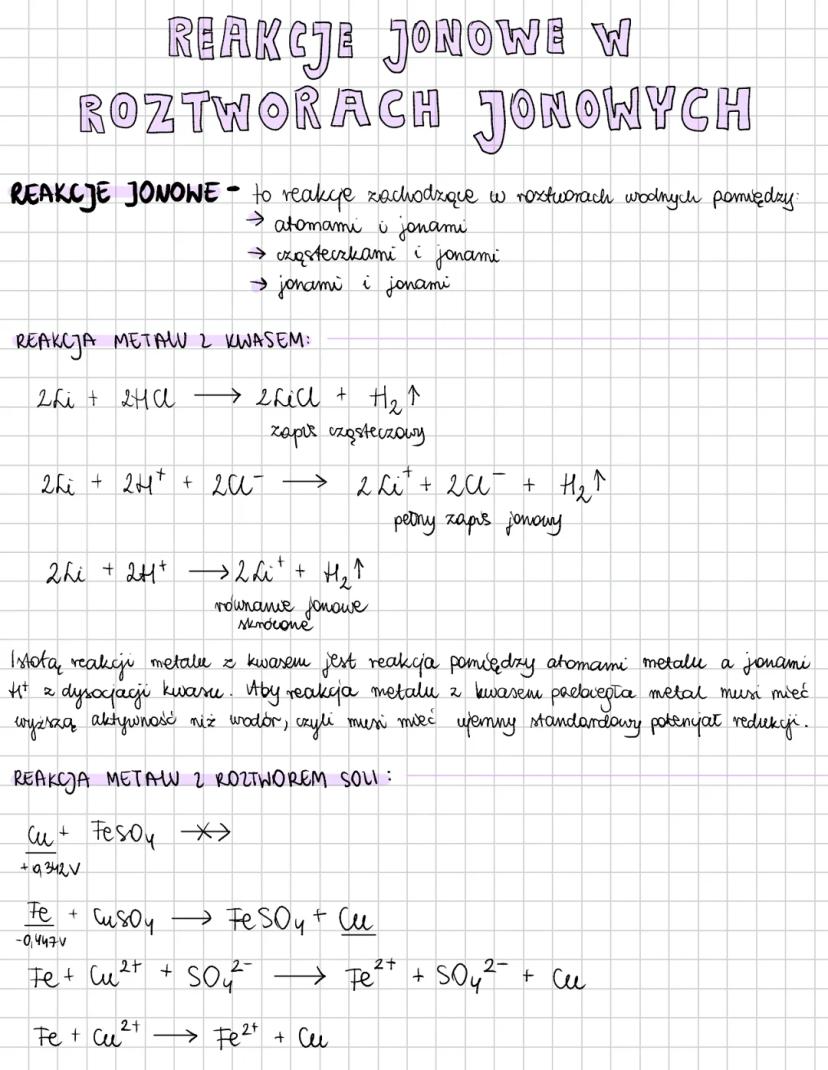 REAKCJE JONOWE W
ROZTWORACH JONOWYCH
REAKCJE JONOWE - to reakcje zachodzące w roztworach wodnych pomiędzy:
→ atomami i jonami
→ cząsteczkami i jonami
→ jonami i jonami
REAKCJA METALU Z KWASEM:
2Li + 2HCl → 2LiCl + H₂↑
zapis cząsteczowy
2Li + 2H⁺ + 2Cl⁻ → 2Li⁺ + 2Cl⁻ + H₂↑
pełny zapis jonowy
2Li + 2H⁺ → 2Li⁺ + H₂↑
równanie jonowe
skrócone
Istotą reakcji metalu z kwasem jest reakcja pomiędzy atomami metalu a jonami
H⁺ z dysocjacji kwasu. Aby reakcja metalu z kwasem przebiegła metal musi mieć
wyższą aktywność niż wodór, czyli musi mieć ujemny standardowy potencjał redukcji.
REAKCJA METALU Z ROZTWOREM SOLI:
Cu + FeSO₄ ↛
+0,342V
Fe + CuSO₄ → FeSO₄ + Cu
-0,447V
Fe + Cu²⁺ + SO₄²⁻ → Fe²⁺ + SO₄²⁻ + Cu
Fe + Cu²⁺ → Fe²⁺ + Cu